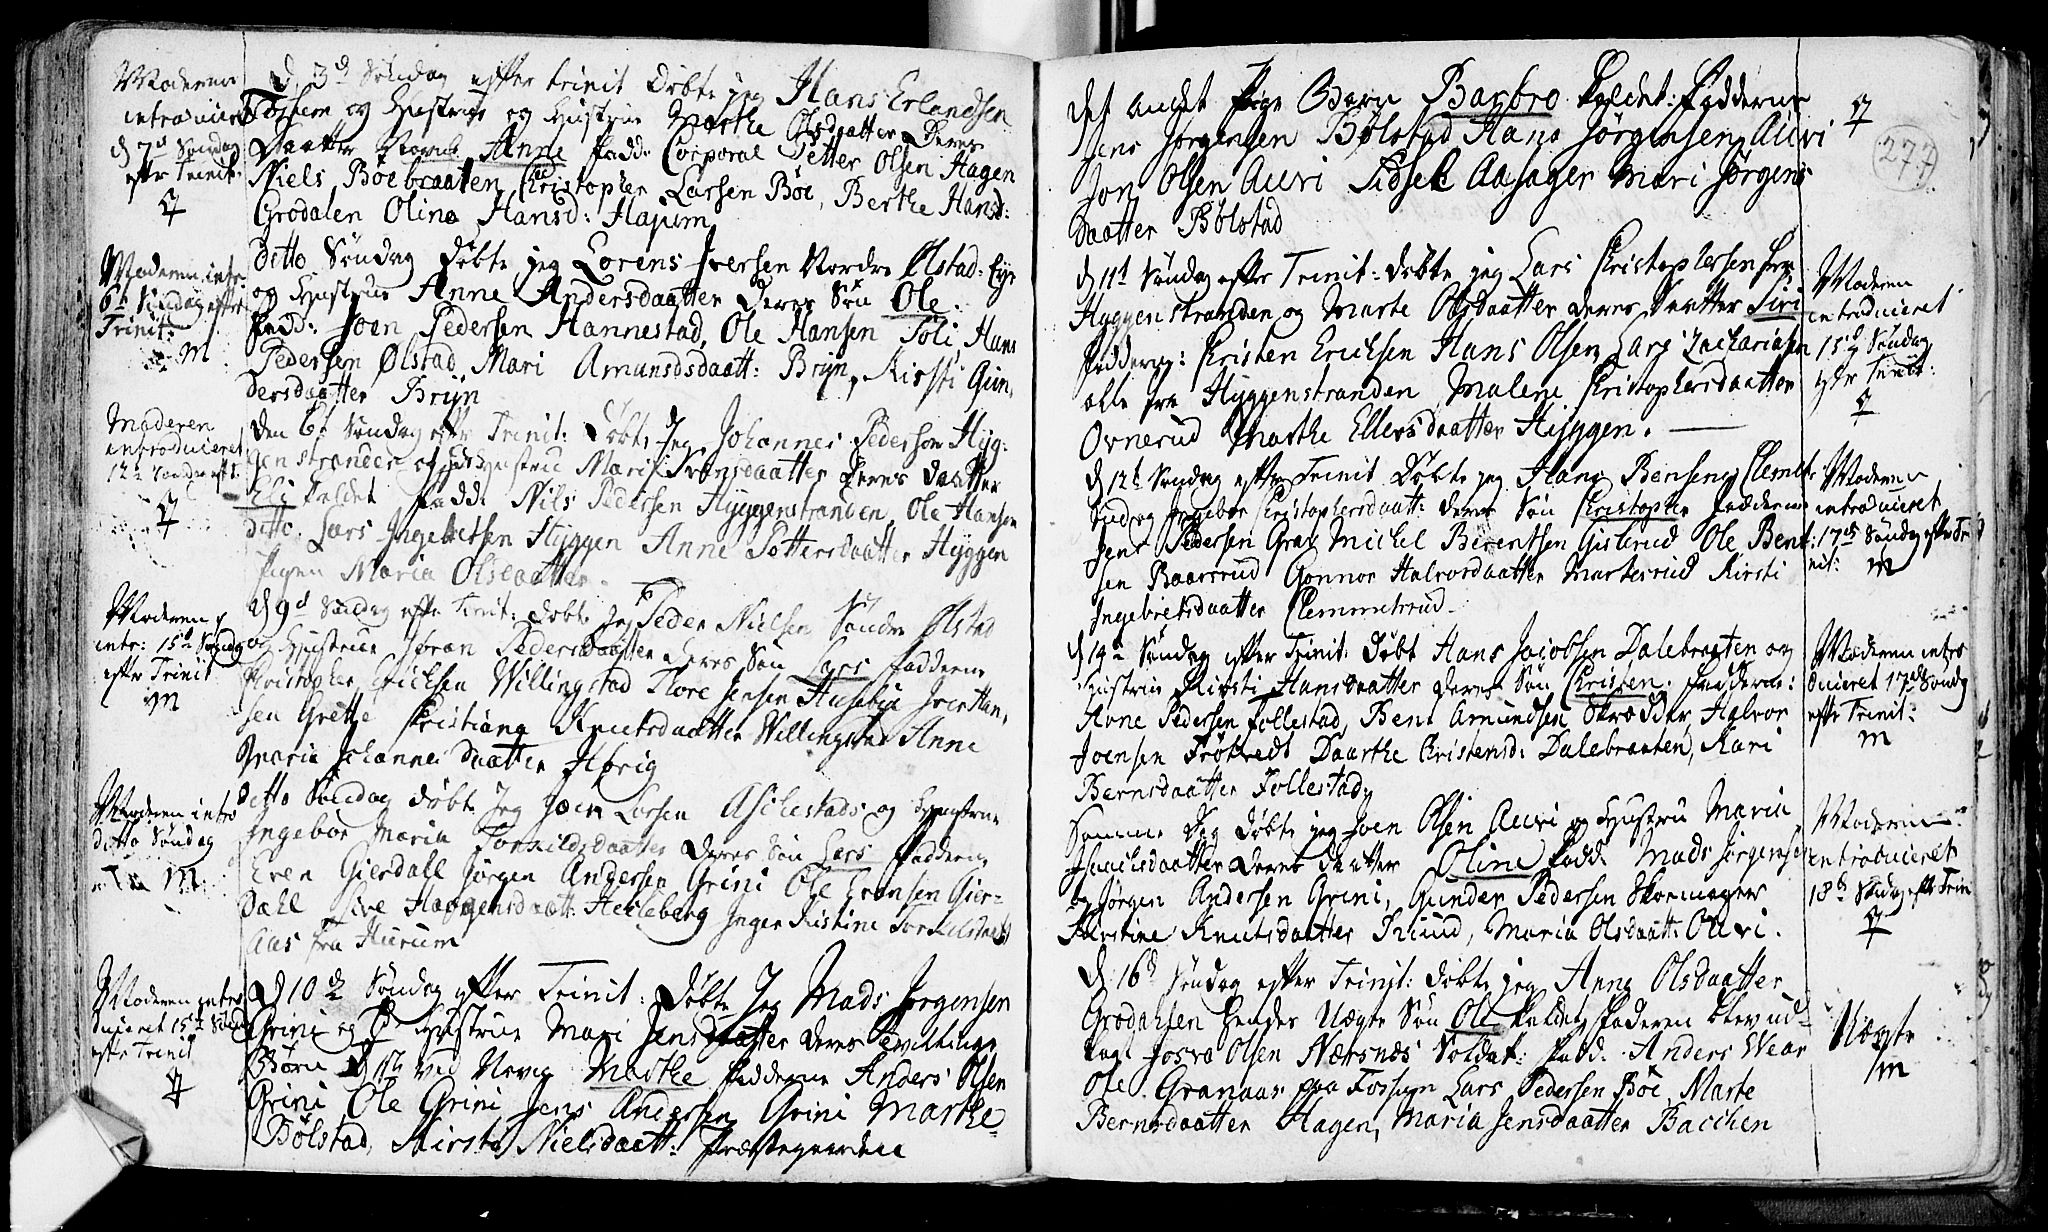 Moderen
introduceret
d 7d Søndag
efter Trinit:
♀
D. 3d Søndag efter trinit Døbte jeg Hans Erlandsen
og Hustrue Marthe Olsdaatter Deres
Daatter Anne fadd: Corporal Petter Olsen Hagen
Niels Böebraaten Christopher Larsen Böe, Berthe Hansd:
Grodalen Olina Hansd: Hajum
Moderen intr:
6d Søndag efter
Trinit:
m
Ditto Søndag Døbte jeg Lorens Iversen Nordre Ølstad: Eyr
og Hustrue Anne Andersdaatter Deres Søn Ole.
fadd: Joen Pedersen Hannestad, Ole Hansen Toli Hans
Pedersen Ølstad, Mari Amundsdaatt: Bryn, Kirsti Gun,
dersdaatter Bryn
Moderen
introduceret
12te Søndag eft:
♀
Den 6t Søndag efter Trinit: Døbte Jeg Johannes Pedersen Hyg:
genstranden og Hustrue Mari Svensdaatter Deres Daatter
Eli kaldet fadd: Nils Pedersen Hyggenstranden, Ole Hansen
ditto, Lars Ingebretsen Hyggen Anne Pettersdaatter Hyggen
Pigen Maria Olsdaatter.
Moderen
intr: 15d Søndag
efter Trinit
m
D 9d Søndag efter Trinit: Døbte jeg Peder Nielsen Søndre Ølstad
og Hustrue Pedersdaatter Deres Søn Lars fadderne
Christopher Erichsen Willingstad Thore Jensen Huseby Iver Han,
sen Grette Christiana Knutsdaatter Willingstad Anne
Maria Johannesdaatter
Moderen intro
ditto Søndag
m
Ditto Søndag døbte Jeg Joen Larsen og Hustrue
Ingebor Maria Torkildsdaatter Deres Søn Lars fadderne
Even Gierdall Jørgen Andersen Grini Ole Evensen Gier-
dahl Live Haagensdaatt: Heileberg Inger Kistine Torkilsdaatt
Aas fra Hurum
Moderen intro
duceret 15d Søndag
efter Trinit
♀
D 10d Søndag efter Trinit: Døbte Jeg Mads Jørgensen
Grini og Hustrue Mari Jensdaatter Deres Tvillinge
Børn d 1te ved Navn Marthe fadderne Anders Olsen
Grini Ole Grini Jens Andersen Grini Marthe
Bölstad, Kirsti Nielsdaatt: Præstegaarden
277
Det andet Pige Barn Barbro kaldet: fadderne
Jens Jørgensen Bølstad Hans Jørgensen Auvi
Jon Olsen Auvi Sidsel Aasager Mari Jørgens
daatter Bölstad
♀
D 11t Søndag efter Trinit: døbte jeg Lars Christophersen fra
Hyggenstranden og Marte Olsdaatter Deres Daatter Siri
fadderne: Christen Erichsen Hans Olsen Lars Zachariasen
alle fra Hyggenstranden Malene Christophersdaatter
Ovnerud Marthe Ellersdaatter Hyggen.
Moderen
introduceret
15d Søndag
efter Trinit:
♀
D 12t Søndag efter Trinit Døbte jeg Hans Bensen Clemet
srud og Ingebor Christophersdaatt: deres Søn Christopher fadderne
Jens Pedersen Grav Michel Berentsen Gisterud Ole Bent
sen Baarsrud Gonnor Halvordaatter Marterud Kirsti
Ingebretsdaatter Clemmetsrud
Moderen
introduceret
17de Søndag efter Tri
nit: m
D 14d Søndag efter Trinit: Døbt Hans Jacobsen Dalebraaten og
Hustrue Kirsti Hansdaatter deres Søn Christen. fadderne:
Arne Pedersen Follestad, Bent Amundsen Skrædder, Halvor
Joensen Daarthe Christensd: Dalebraaten, Kari
Berntdaatter Follestad,
Moderen intro
duceret 17de Søndag
efter Trinit:
m
Samme Dag døbte jeg Joen Olsen Auvi og Hustru Maria
daatter Deres Daatter Oline fadd: Mads Jørgensen
og Jørgen Andersen Grini, Gunder Pedersen Skoemager
Kirstine Knutsdaatter Maria Olsdaatt: Auvi.
Moderen
introduceret
18d Søndag efter Trin
♀
D. 16d Søndag efter Trinit: døbte jeg Anne Olsdaatter
Grodahlsen hendes Uægte Søn Ole kaldet, faderen blev ud-
lagt Josva Olsen Nærsnæs Soldat: fadd: Anders Wear
Ole Granaas paa Fossum Lars Pedersen Böe, Marte
Berntdaatter Hagen, Maria Jensdaatter Bacchen
Uægte
m